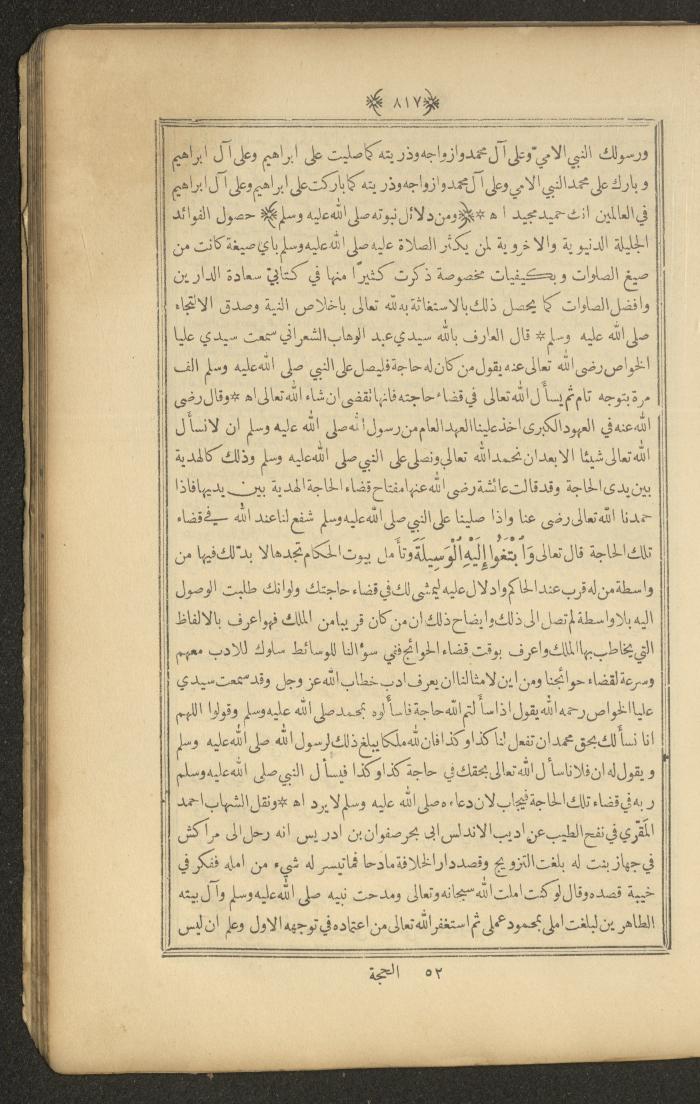 ﴿٨١٧﴾
ورسولك النبي الامي وعلى آل محمد وازواجه وذريته كما صليت على ابراهيم وعلى آل ابراهيم
وبارك على محمد النبي الامي وعلى آل محمد وازواجه وذريته كما باركت على ابراهيم وعلى آل ابراهيم
في العالمين انك حميد مجيد اه * ﴿ومن دلائل نبوته صلى الله عليه وسلم﴾ حصول الفوائد
الجليلة الدنيوية والاخروية لمن يكثر الصلاة عليه صلى الله عليه وسلم باي صيغة كانت من
صيغ الصلوات وبكيفيات مخصوصة ذكرت كثيرًا منها في كتابي سعادة الدارين
وافضل الصلوات كما يحصل ذلك بالاستغاثة به لله تعالى باخلاص النية وصدق الالتجاء
صلى الله عليه وسلم * قال العارف بالله سيدي عبد الوهاب الشعراني سمعت سيدي عليا
الخواص رضى الله تعالى عنه يقول من كان له حاجة فليصل على النبي صلى الله عليه وسلم الف
مرة بتوجه تام ثم يسأل الله تعالى في قضاء حاجته فانها تقضى ان شاء الله تعالى اه * وقال رضى
الله عنه في العهود الكبرى اخذ علينا العهد العام من رسول الله صلى الله عليه وسلم ان لا نسأل
الله تعالى شيئا الا بعد ان نحمد الله تعالى ونصلى على النبي صلى الله عليه وسلم وذلك كالهدية
بين يدى الحاجة وقد قالت عائشة رضى الله عنها مفتاح قضاء الحاجة الهدية بين يديها فاذا
حمدنا الله تعالى رضى عنا واذا صلينا على النبي صلى الله عليه وسلم شفع لنا عند الله في قضاء
تلك الحاجة قال تعالى وَٱبْتَغُوا إِلَيْهِ ٱلْوَسِيلَةَ وتأمل بيوت الحكام تجدها لا بد لك فيها من
واسطة من له قرب عند الحاكم وادلال عليه ليمشى لك في قضاء حاجتك ولو انك طلبت الوصول
اليه بلا واسطة لم تصل الى ذلك وايضاح ذلك ان من كان قريبا من الملك فهو اعرف بالالفاظ
التي يخاطب بها الملك واعرف بوقت قضاء الحوائج ففي سؤالنا للوسائط سلوك للادب معهم
وسرعة لقضاء حوائجنا ومن اين لامثالنا ان يعرف ادب خطاب الله عز وجل وقد سمعت سيدي
عليا الخواص رحمه الله يقول اذا سألتم الله حاجة فاسألوه بمحمد صلى الله عليه وسلم وقولوا اللهم
انا نسألك بحق محمد ان تفعل لنا كذا وكذا فان لله ملكا يبلغ ذلك لرسول الله صلى الله عليه وسلم
ويقول له ان فلانا سأل الله تعالى بحقك في حاجة كذا وكذا فيسأل النبي صلى الله عليه وسلم
ربه في قضاء تلك الحاجة فيجاب لان دعاءه صلى الله عليه وسلم لا يرد اه * ونقل الشهاب احمد
المقّري في نفح الطيب عن اديب الاندلس ابى بحر صفوان بن ادريس انه رحل الى مراكش
في جهاز بنت له بلغت التزويج وقصد دار الخلافة مادحا فما تيسر له شيء من امله ففكر في
خيبة قصده وقال لو كنت املت الله سبحانه وتعالى ومدحت نبيه صلى الله عليه وسلم وآل بيته
الطاهرين لبلغت املى بمحمود عملى ثم استغفر الله تعالى من اعتماده في توجهه الاول وعلم ان ليس
٥٢ الحجة